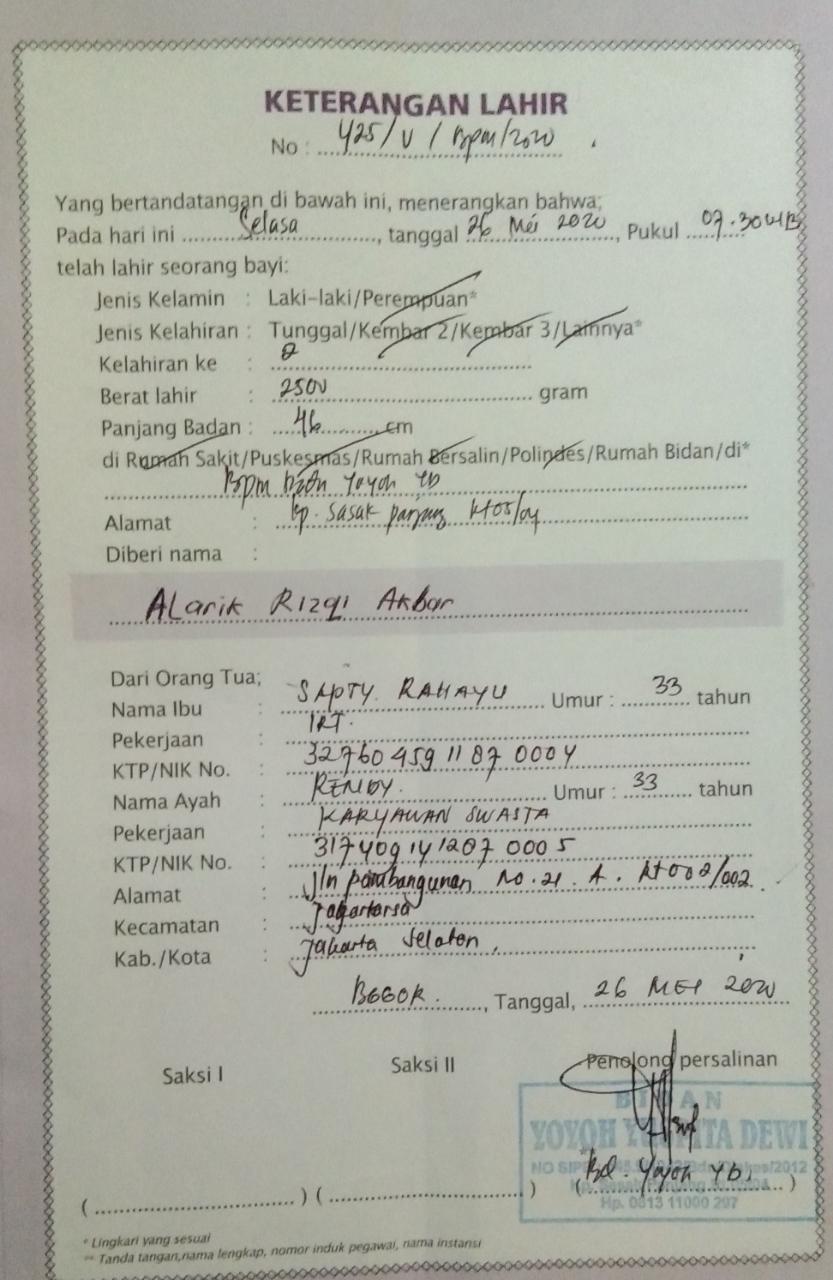 KETERANGAN LAHIR
No : 425/V/Bpm/2020
Yang bertandatangan di bawah ini, menerangkan bahwa;
Pada hari ini Selasa, tanggal 26 Mei 2020, Pukul 07.30 WIB
telah lahir seorang bayi:
Jenis Kelamin : Laki-laki/Perempuan*
Jenis Kelahiran : Tunggal/Kembar 2/Kembar 3/Lainnya*
Kelahiran ke : 2
Berat lahir : 2500 gram
Panjang Badan : 46 cm
di Rumah Sakit/Puskesmas/Rumah Bersalin/Polindes/Rumah Bidan/di*
Bpm bidan Yoyoh YD
Alamat : kp. Sasak panjang Rt05/04
Diberi nama :
ALarik RIzqi Akbar
Dari Orang Tua;
Nama Ibu : SAPTY. RAHAYU Umur : 33 tahun
Pekerjaan : IRT.
KTP/NIK No. : 3276045911870004
Nama Ayah : RENDY. Umur : 33 tahun
Pekerjaan : KARYAWAN SWASTA
KTP/NIK No. : 3174091412070005
Alamat : Jln pembangunan No. 21. A. Rt002/002
Kecamatan : Jagakarsa
Kab./Kota : Jakarta Selatan,
BOGOR., Tanggal, 26 MEI 2020
Saksi I Saksi II Penolong persalinan
BIDAN
YOYOH DEWI
NO /2012
Bd. Yoyoh YD.
Hp. 0813 11000 297
* Lingkari yang sesuai
** Tanda tangan,nama lengkap, nomor induk pegawai, nama instansi